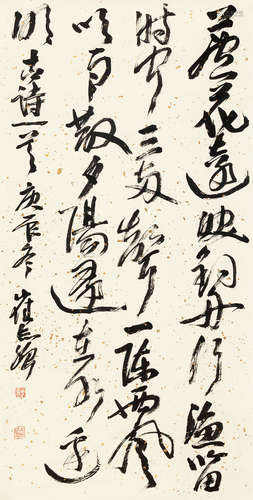 蘆花遠映釣舟行漁笛
時聞三兩聲一陣西風
吹雨散夕陽還在水邊
明 古詩一首 庚冬 崔